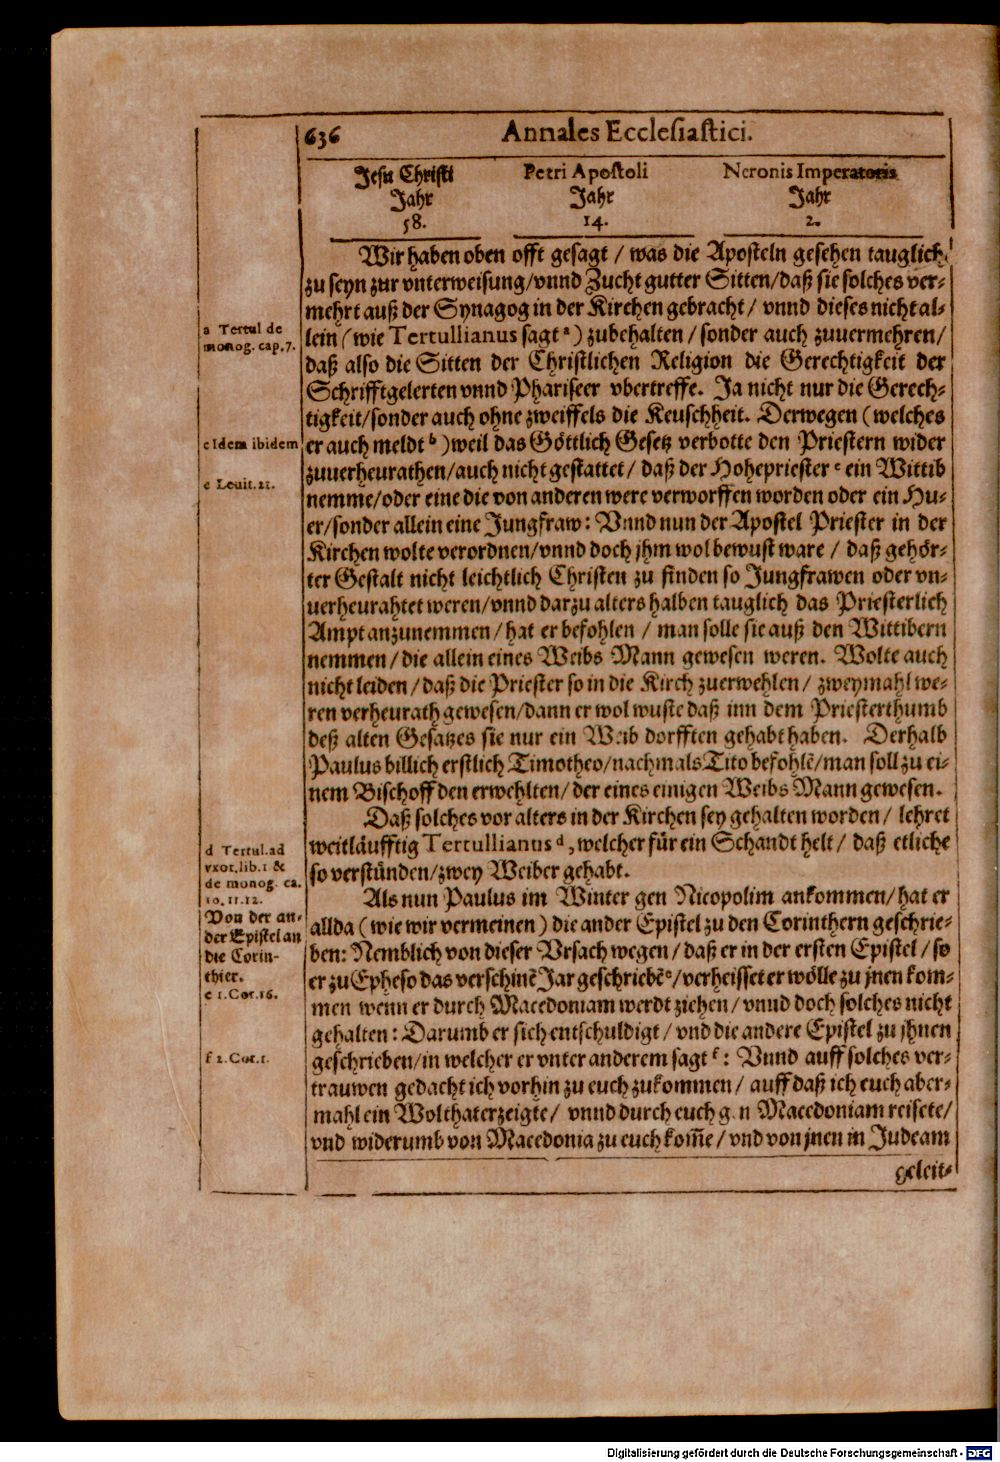 636 Annales Ecclesiastici.
Jesu Christi Petri Apostoli Neronis Imperatoris
Jahr Jahr Jahr
58. 14. 2.
Wir haben oben offt gesagt / was die Aposteln gesehen tauglich
zu seyn zur vnterweisung/vnnd Zucht gutter Sitten/daß sie solches ver-
mehrt auß der Synagog in der Kirchen gebracht / vnnd dieses nicht al-
lein (wie Tertullianus sagt a) zubehalten / sonder auch zuuermehren/
daß also die Sitten der Christlichen Religion die Gerechtigkeit der
Schrifftgelerten vnnd Phariseer vbertreffe. Ja nicht nur die Gerech-
tigkeit/sonder auch ohne zweiffels die Keuschheit. Derwegen (welches
er auch meldt b) weil das Göttlich Gesetz verbotte den Priestern wider
zuuerheurathen/auch nicht gestattet/ daß der Hohepriester c ein Wittib
nemme/oder eine die von anderen were verworffen worden oder ein Hu-
er/sonder allein eine Jungfraw: Vnnd nun der Apostel Priester in der
Kirchen wolte verordnen/vnnd doch jhm wol bewust ware / daß gehör-
ter Gestalt nicht leichtlich Christen zu finden so Jungfrawen oder vn-
uerheurahtet weren/vnnd darzu alters halben tauglich das Priesterlich
Ampt anzunemmen/ hat er befohlen / man solle sie auß den Wittibern
nemmen / die allein eines Weibs Mann gewesen weren. Wolte auch
nicht leiden / daß die Priester so in die Kirch zuerwehlen / zweymahl we-
ren verheurath gewesen/dann er wol wuste daß inn dem Priesterthumb
deß alten Gesatzes sie nur ein Weib dorfften gehabt haben. Derhalb
Paulus billich erstlich Timotheo/nachmals Tito befohlẽ/man soll zu ei-
nem Bischoff den erwehlten/ der eines einigen Weibs Mann gewesen.
Daß solches vor alters in der Kirchen sey gehalten worden / lehret
weitläufftig Tertullianus d, welcher für ein Schandt helt / daß etliche
so verstünden/zwey Weiber gehabt.
Als nun Paulus im Winter gen Nicopolim ankommen/ hat er
allda (wie wir vermeinen) die ander Epistel zu den Corinthern geschrie-
ben: Nemblich von dieser Vrsach wegen / daß er in der ersten Epistel / so
er zu Epheso das verschinẽ Jar geschriebẽ e/verheisset er wölle zu jnen kom-
men wenn er durch Macedoniam werdt ziehen / vnnd doch solches nicht
gehalten: Darumb er sich entschuldigt / vnd die andere Epistel zu jhnen
geschrieben/in welcher er vnter anderem sagt f: Vnnd auff solches ver-
trauwen gedacht ich vorhin zu euch zukommen / auff daß ich euch aber-
mahl ein Wolthat erzeigte/ vnnd durch euch g n Macedoniam reisete/
vnd widerumb von Macedonia zu euch kom̃e / vnd von jnen in Judeam
geleit-
a Tertul de
monog. cap. 7.
c Idem ibidem
c Leuit. 21.
d Tertul. ad
vxor. lib. 1 &
de monog. ca.
10. 11. 12.
Von der an-
der Epistel an
die Corin-
thier.
e 1. Cor. 16.
f 2. Cor. 1.
Digitalisierung gefördert durch die Deutsche Forschungsgemeinschaft - DFG